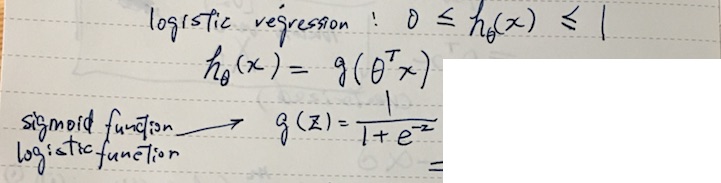 logistic regression : 0 ≤ hθ(x) ≤ 1
hθ(x) = g(θᵀx)
sigmoid function → g(z) = 1 / 1 + e⁻ᶻ
logistic function
=